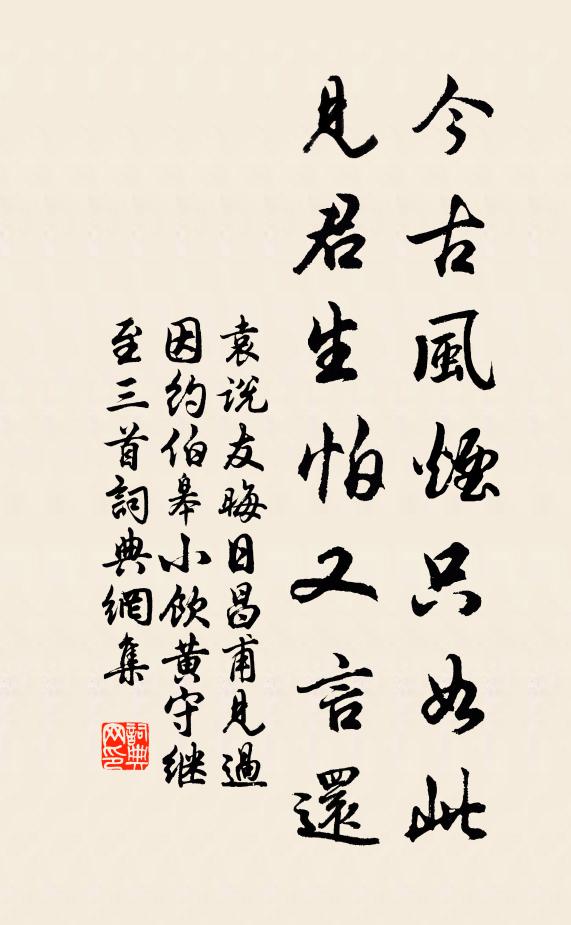 今古風煙只如此
見君生怕又言還
袁说友晦日昌甫見過
因约伯皋小飲黄守继
至三首詞典網集
詞典
网印